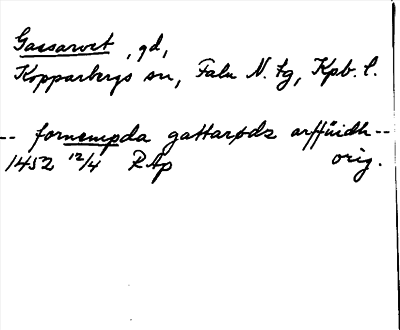 Gassarvet, gd,
Kopparbergs sn, Falu N. tg, Kpb. l.
-- fornempda gattarpdz arffüidh --
1452 12/4 RAp orig.